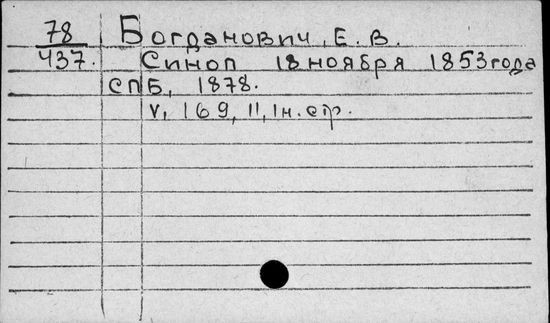 78 Богданович, Е. В.
437. Синоп 18 ноября 1853 года
СПБ, 1878.
V, 169, II, 1н. стр.